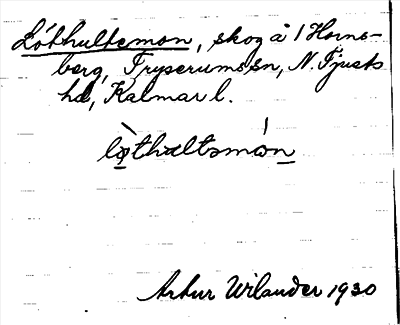 Lóthultsmon, skog å 1 Horns-
berg, Tryserums sn, N. Tjusts
hd, Kalmar l.
lò̱thaltsmón̲
Arthur Wilander 1930